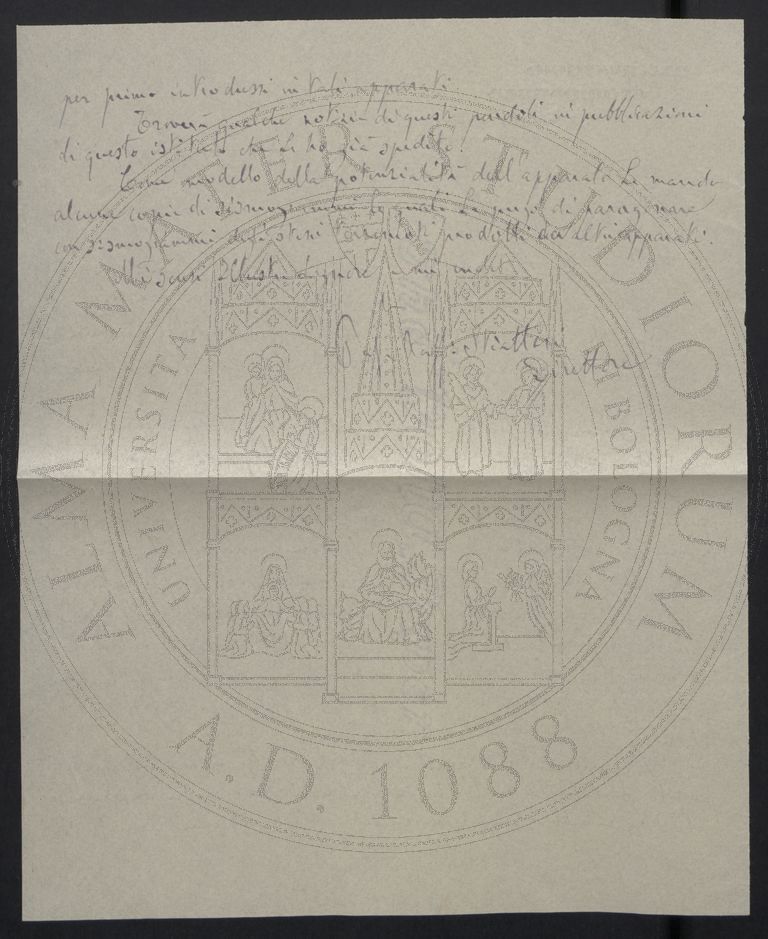 per primo introdussi in tali apparati.
Troverà qualche notizia di questi pendoli in pubblicazioni
di questo istituto che Le ho già spedite.
Come modello della potenzialità dell'apparato Le mando
alcune copie di sismogrammi i quali La prego di paragonare
con sismogrammi degli stessi terremoti prodotti da altri apparati.
Mi scusi Illustre Signore e mi
Prof. Raff. Stiattesi
Direttore
ALMA MATER STUDIORUM
UNIVERSITA DI BOLOGNA
A.D. 1088